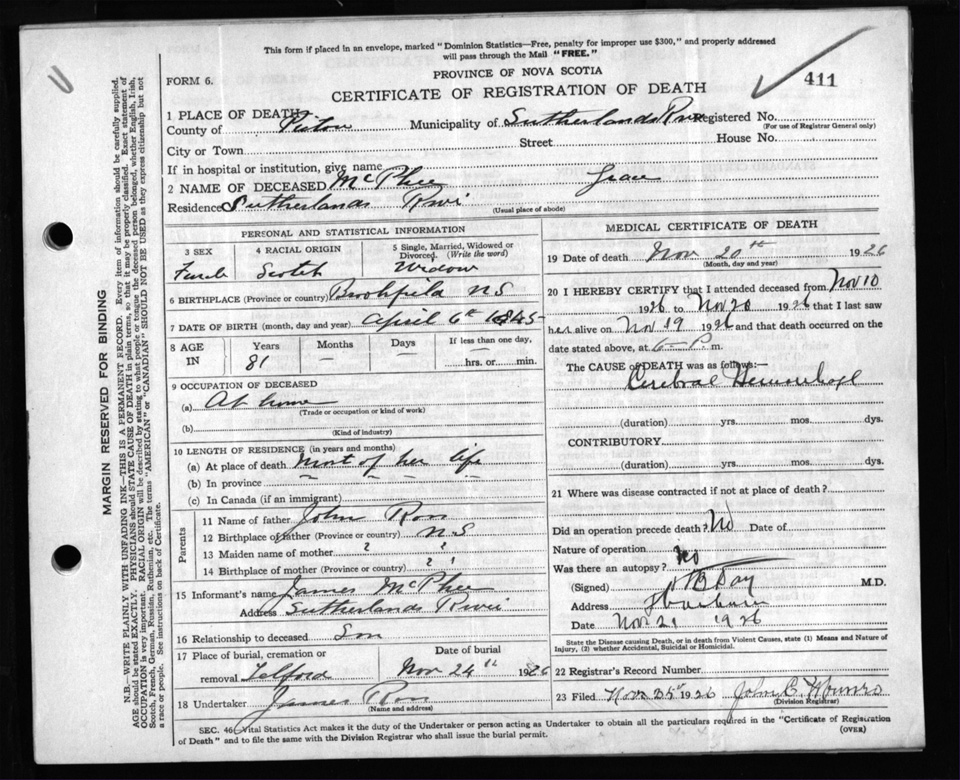 This form if placed in an envelope, marked "Dominion Statistics—Free, penalty for improper use $300," and properly addressed
will pass through the Mail "FREE."
FORM 6.
PROVINCE OF NOVA SCOTIA
411
CERTIFICATE OF REGISTRATION OF DEATH
1 PLACE OF DEATH
County of Pictou Municipality of Sutherlands River Registered No.
(For use of Registrar General only)
City or Town Street House No.
If in hospital or institution, give name
2 NAME OF DECEASED McPhee Grace
Residence Sutherlands River
(Usual place of abode)
PERSONAL AND STATISTICAL INFORMATION
3 SEX 4 RACIAL ORIGIN 5 Single, Married, Widowed or
Divorced. (Write the word)
Female Scotch Widow
6 BIRTHPLACE (Province or country) Brookfield N S
7 DATE OF BIRTH (month, day and year) April 6th 1845
8 AGE IN Years Months Days If less than one day,
81 — — hrs. or min.
9 OCCUPATION OF DECEASED
(a) At home
(Trade or occupation or kind of work)
(b)
(Kind of industry)
10 LENGTH OF RESIDENCE (in years and months)
(a) At place of death most of her life
(b) In province
(c) In Canada (if an immigrant)
Parents
11 Name of father John Ross
12 Birthplace of father (Province or country) N S
13 Maiden name of mother ? ?
14 Birthplace of mother (Province or country) ? ?
15 Informant's name James McPhee
Address Sutherlands River
16 Relationship to deceased Son
17 Place of burial, cremation or Date of burial
removal Telford Nov 24th 1926
18 Undertaker James Ross
(Name and address)
MEDICAL CERTIFICATE OF DEATH
19 Date of death Nov 20th 1926
(Month, day and year)
20 I HEREBY CERTIFY that I attended deceased from Nov 10
1926 to Nov 20 1926 that I last saw
her alive on Nov 19 1926 and that death occurred on the
date stated above, at 6 P. m.
The CAUSE OF DEATH was as follows:—
Cerebral
(duration) yrs. mos. dys.
CONTRIBUTORY
(duration) yrs. mos. dys.
21 Where was disease contracted if not at place of death?
Did an operation precede death? No Date of
Nature of operation
Was there an autopsy? No
(Signed) Day M.D.
Address
Date Nov 21 1926
State the Disease causing Death, or in death from Violent Causes, state (1) Means and Nature of
Injury, (2) whether Accidental, Suicidal or Homicidal.
22 Registrar's Record Number
23 Filed Nov 25th 1926 John C. Munro
(Division Registrar)
SEC. 46 (Vital Statistics Act makes it the duty of the Undertaker or person acting as Undertaker to obtain all the particulars required in the "Certificate of Registration
of Death" and to file the same with the Division Registrar who shall issue the burial permit.
(OVER)
MARGIN RESERVED FOR BINDING
N.B.—WRITE PLAINLY WITH UNFADING INK—THIS IS A PERMANENT RECORD. Every item of information should be carefully supplied.
AGE should be stated EXACTLY. PHYSICIANS should STATE CAUSE OF DEATH in plain terms, so that it may be properly classified. Exact statement of
OCCUPATION is very important. RACIAL ORIGIN will be described by stating to what people or tongue the deceased person belonged, whether English, Irish,
Scotch, French, German, Russian, Ruthenian, etc. The terms "AMERICAN" or "CANADIAN" SHOULD NOT BE USED as they express citizenship but not
a race or people. See instructions on back of Certificate.